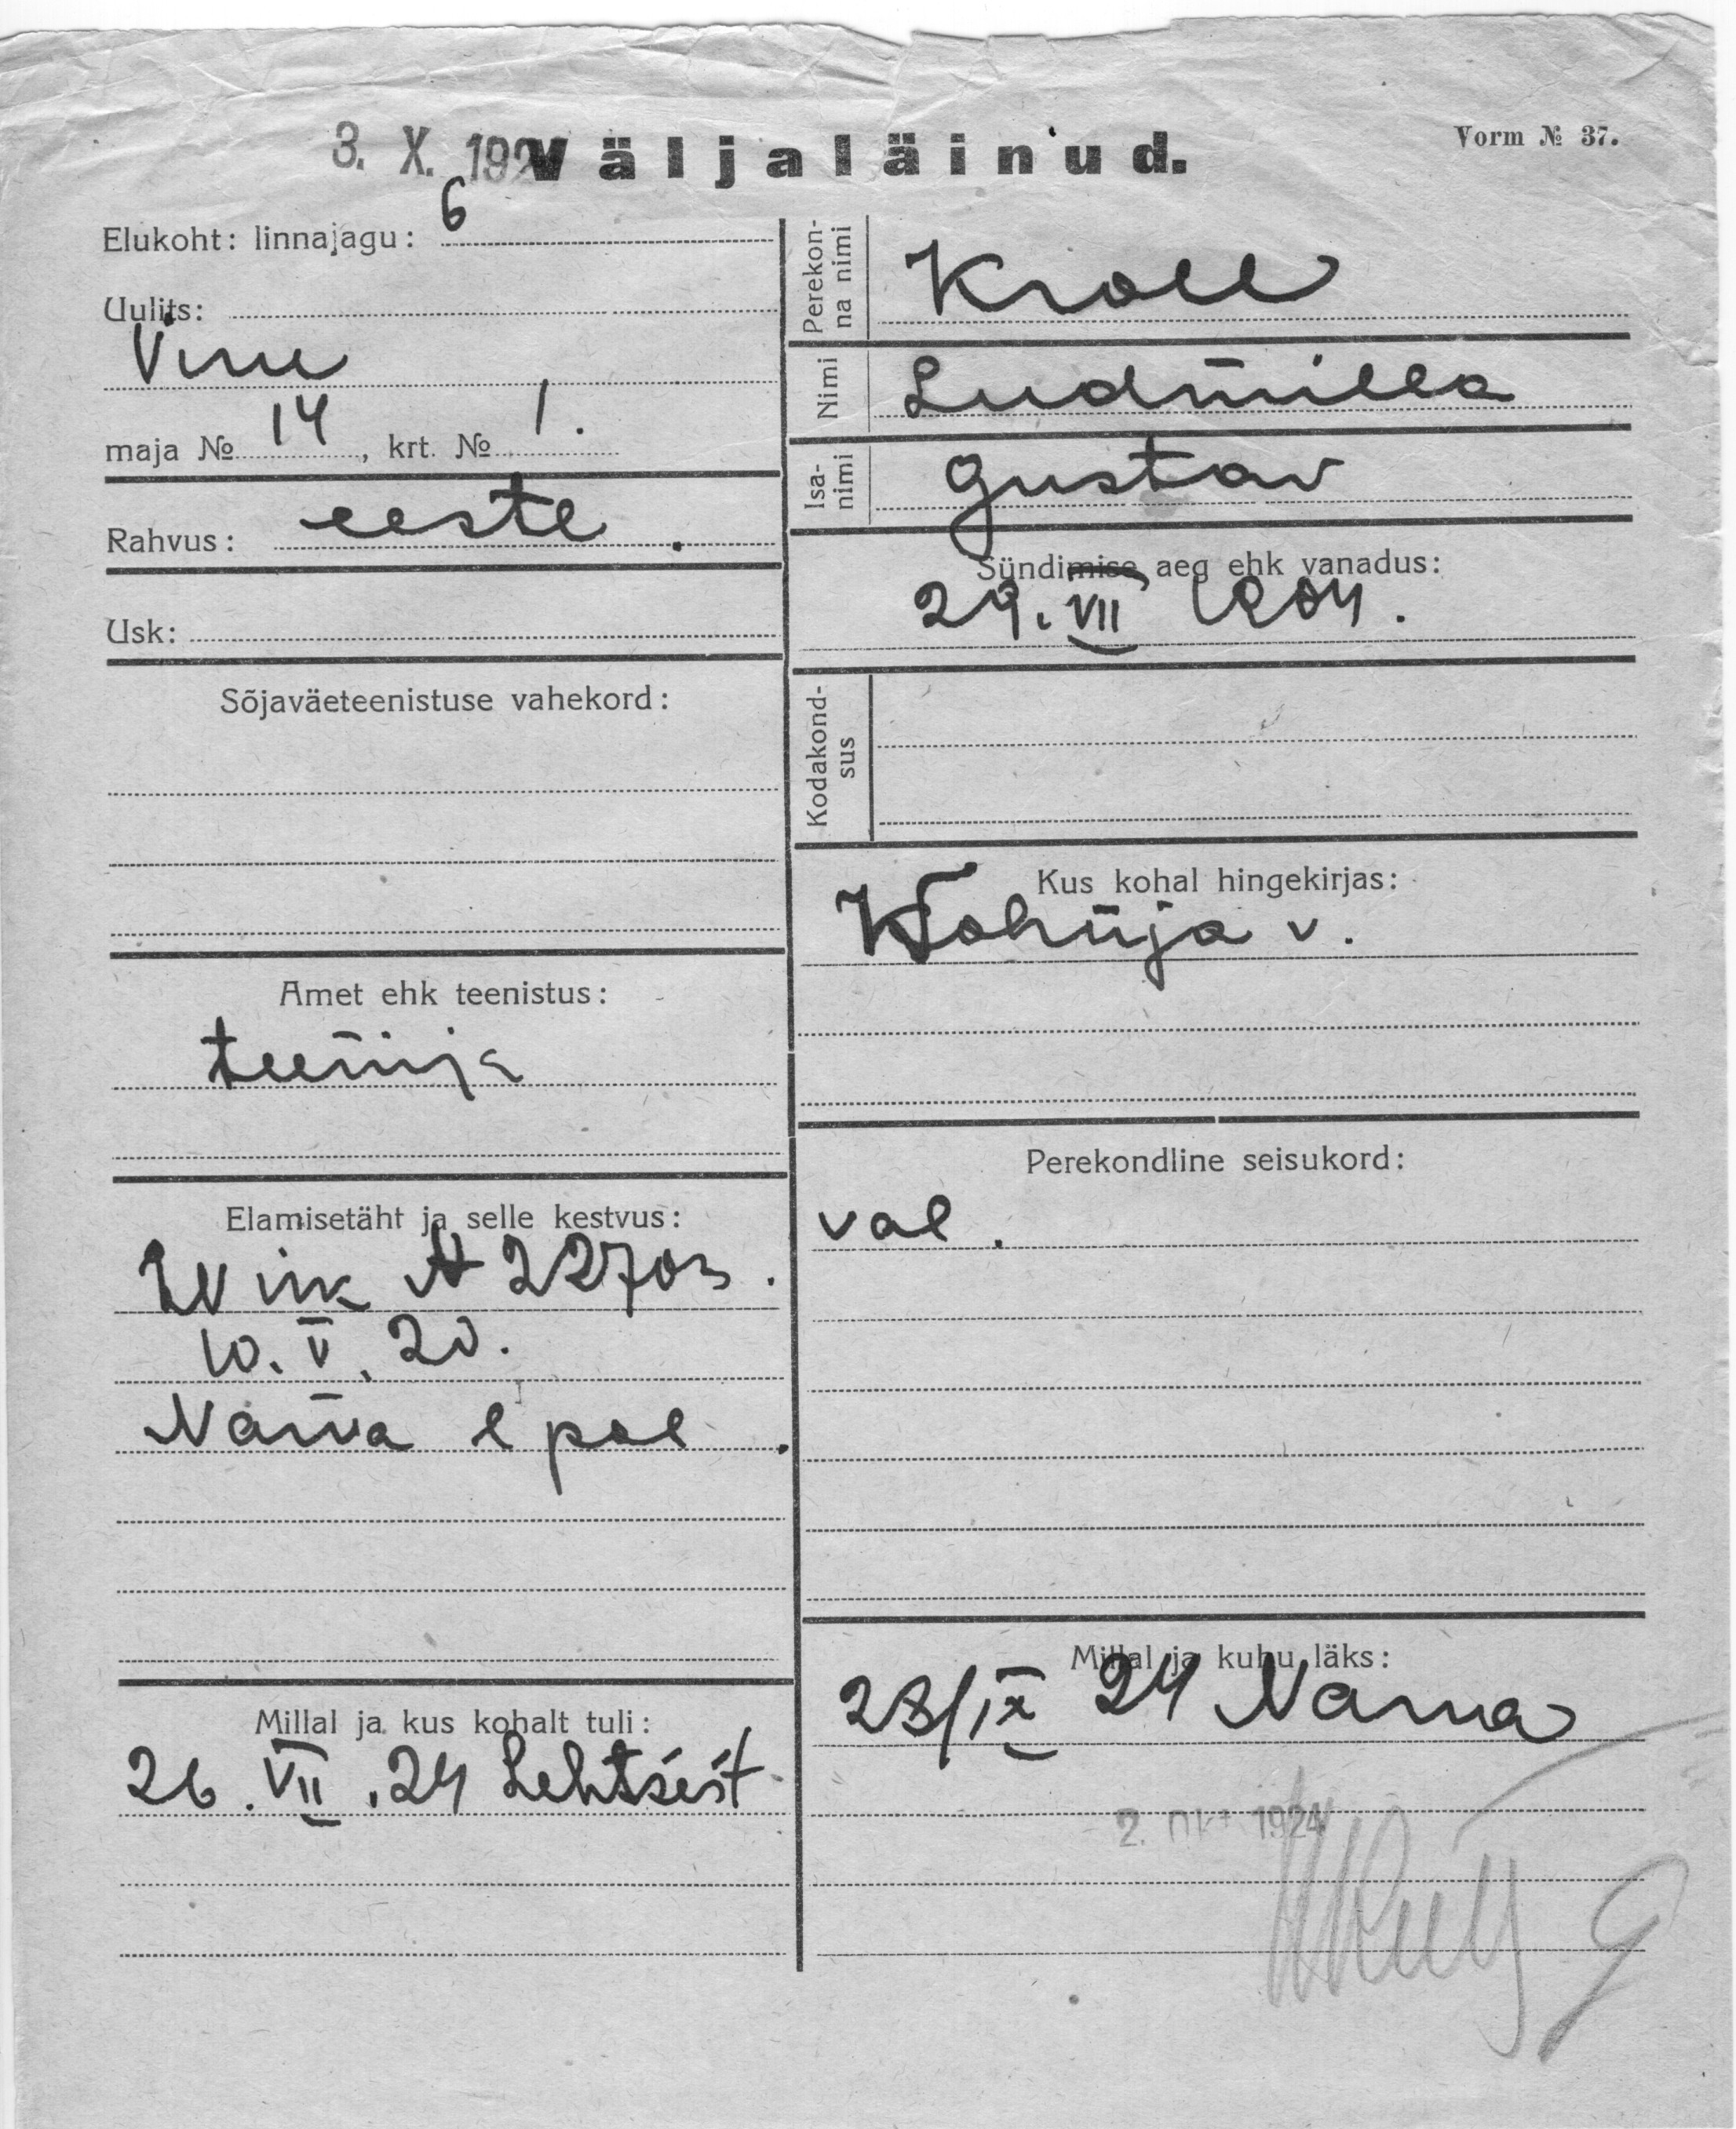 3. X. 192
Väljaläinud.
Vorm № 37.
Elukoht: linnajagu: 6
Uulits:
Viru
maja № 14, krt. № 1.
Rahvus: eeste.
Usk:
Sõjaväeteenistuse vahekord:
Amet ehk teenistus:
teenija
Elamisetäht ja selle kestvus:
22703.
10. V. 20.
Narva pol.
Millal ja kus kohalt tuli:
26. VII. 24 Lehtsest
Perekon-
na nimi
Kroll
Nimi
Ludmilla
Isa-
nimi
Gustav
Sündimise aeg ehk vanadus:
29. VII 1904.
Kodakond-
sus
Kus kohal hingekirjas:
v.
Perekondline seisukord:
val.
Millal ja kuhu läks:
28/IX 24 Narva
2. okt 1924